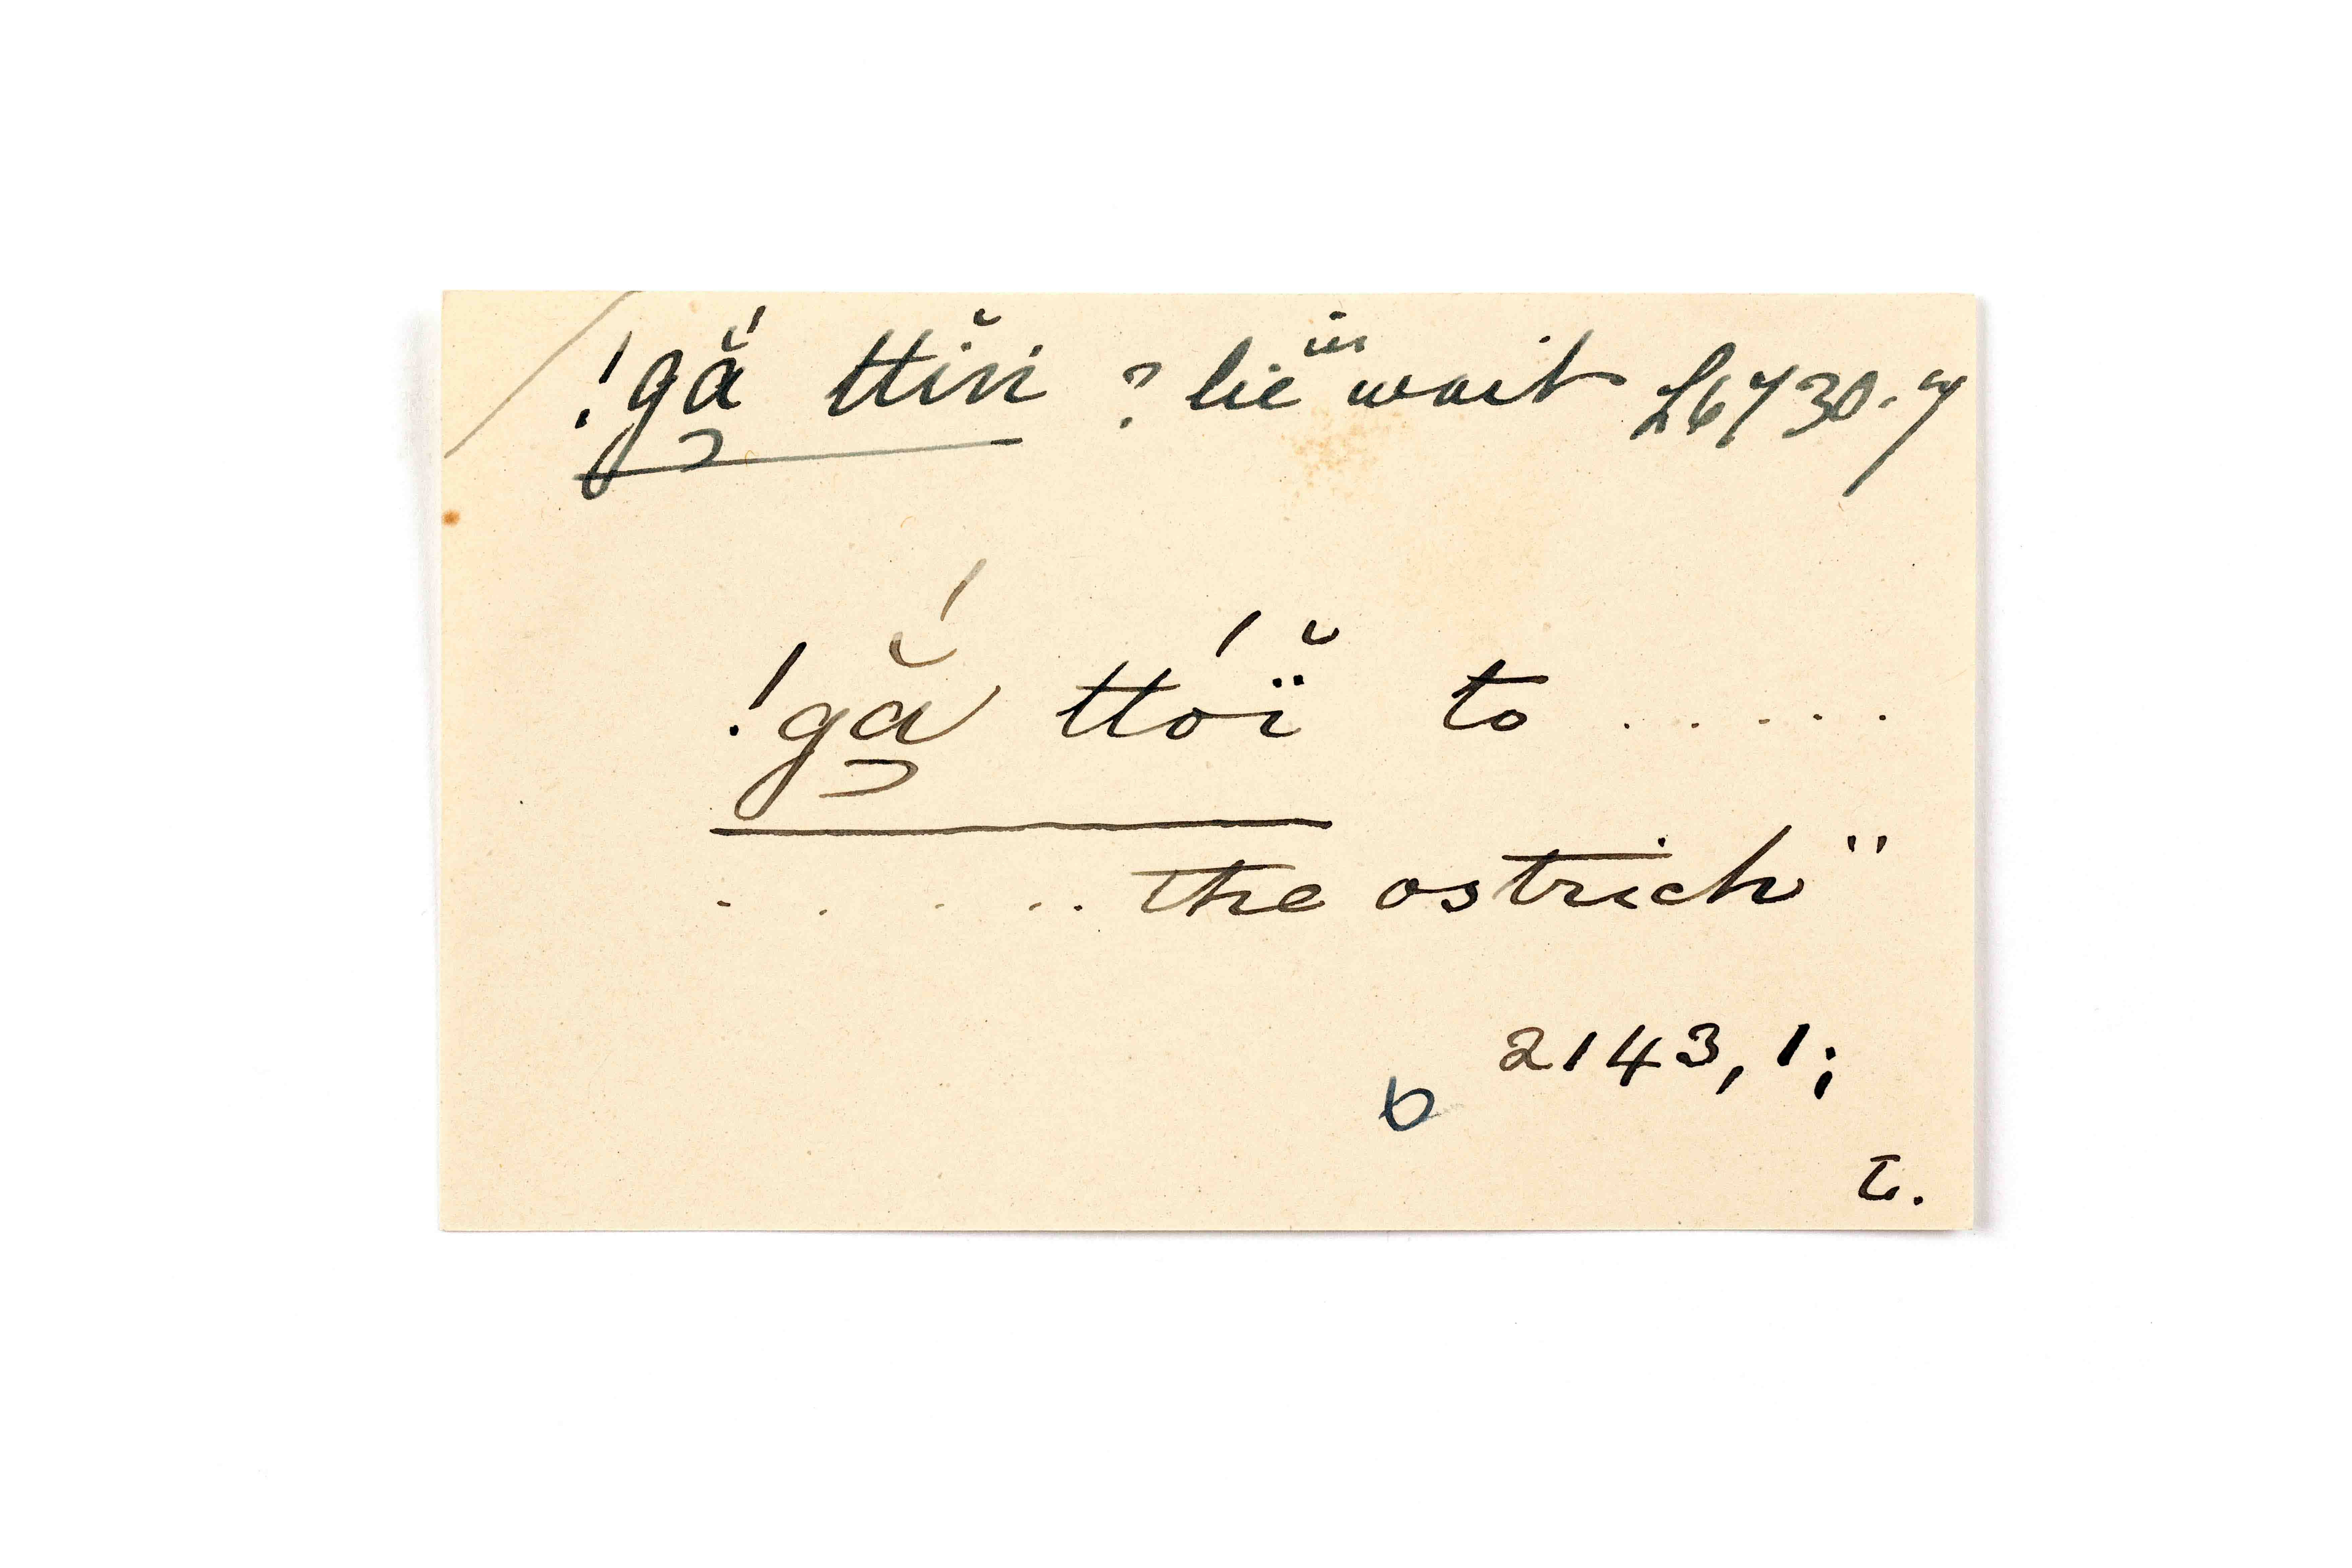 !gắ̯ ttĭri ? lie in wait L6730.7
!gắ̯ ttóï̆ to . . . . .
. . . . . the ostrich"
b 2143, 1;
L.